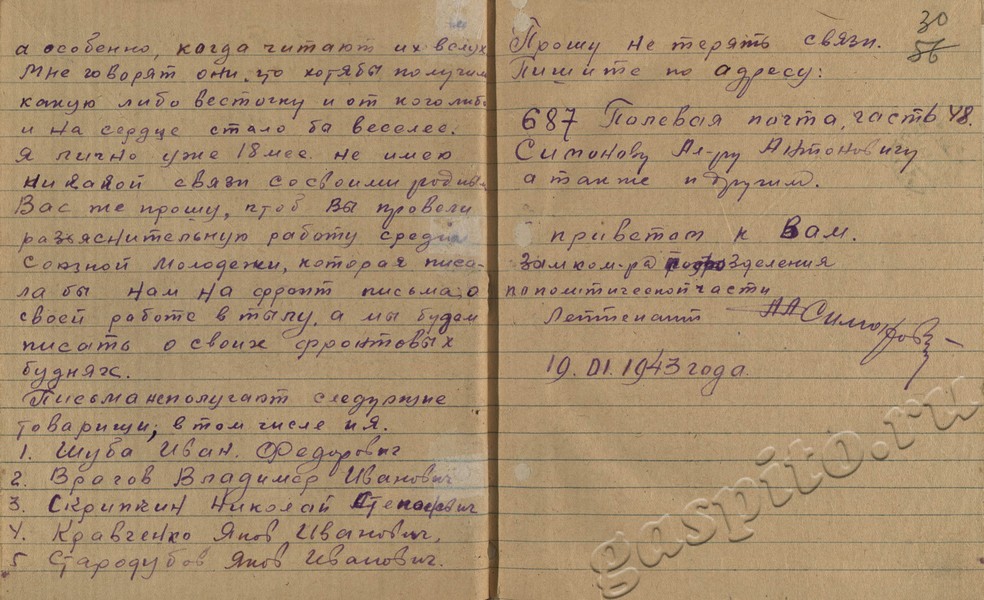 а особенно, когда читают их вслух
Мне говорят они, что хотябы получили
какую либо весточку и от кого либо
и на сердце стало ба веселее.
Я лично уже 18 мес. не имею
никакой связи со своими родными
Вас же прошу, чтоб Вы провели
разъяснительную работу среди
Союзной Молодежи, которая писа-
ла бы нам на фронт письма о
своей работе в тылу, а мы будем
писать о своих фронтовых
буднях.
Письма неполучают следующие
товарищи, в том числе и я.
1. Шуба Иван Федорович
2. Врагов Владимер Иванович
3. Скрипкин Николай Степанович
4. Кравченко Яков Иванович,
5 Стародубов Яков Иванович.
30
56
Прошу не терять связи.
Пишите по адресу:
687 Полевая почта, часть 48.
Симонову Ал-ру Антоновичу
а также и другим.
приветом к Вам.
Зам ком-ра подраздделения
по политической части
Лейтенант ААСимонов
19.III.1943 года.
gaspito.ru